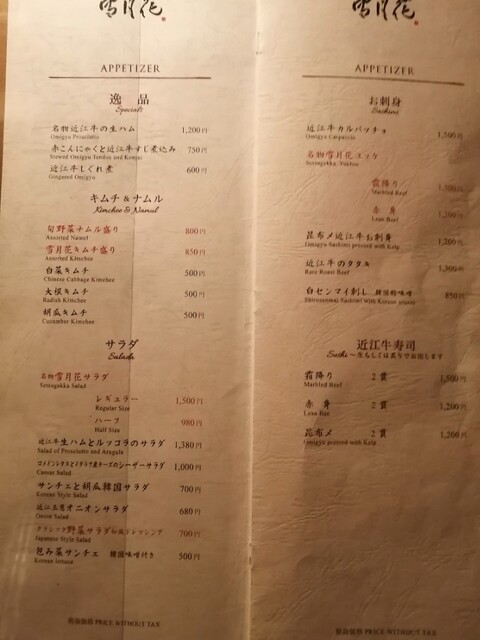 雪月花
APPETIZER
逸品
Specials
名物近江牛の生ハム 1,200円
Omigyu Prosciutto
赤こんにゃくと近江牛すじ煮込み 750円
Stewed Omigyu Tendon and Konjac
近江牛しぐれ煮 600円
Gingered Omigyu
キムチ&ナムル
Kimchee & Namul
旬野菜ナムル盛り 800円
Assorted Namul
雪月花キムチ盛り 850円
Assorted Kimchee
白菜キムチ 500円
Chinese Cabbage Kimchee
大根キムチ 500円
Radish Kimchee
胡瓜キムチ 500円
Cucumber Kimchee
サラダ
Salads
名物雪月花サラダ
Setsugekka Salad
レギュラー 1,500円
Regular Size
ハーフ 980円
Half Size
近江牛生ハムとルッコラのサラダ 1,380円
Salad of Proscuitto and Arugula
コメドンレタスとイタリア産チーズのシーザーサラダ 1,000円
Caesar Salad
サンチェと胡瓜韓国サラダ 700円
Korean Style Salad
近江玉葱オニオンサラダ 680円
Onion Salad
クラシック野菜サラダ和風ドレッシング 700円
Japanese Style Salad
包み菜サンチェ 韓国味噌付き 500円
Korean lettuce
税抜価格 PRICE WITHOUT TAX
雪月花
APPETIZER
お刺身
Sashimi
近江牛カルパッチョ 1,500円
Omigyu Carpaccio
名物雪月花ユッケ
Setsugekka Yukhoe
霜降り 1,500円
Marbled Beef
赤身 1,200円
Lean Beef
昆布〆近江牛お刺身 1,200円
Omigyu Sashimi pressed with Kelp
近江牛のタタキ 1,300円
Rare Roast Beef
白センマイ刺し 韓国酢味噌 850円
Shirosenmai Sashimi with Korean sauce
近江牛寿司
Sushi 〜生もしくは炙りでお出します
霜降り 2貫 1,500円
Marbled Beef
赤身 2貫 1,200円
Lean Bee
昆布〆 2貫 1,200円
Omigyu pressed with Kelp
税抜価格 PRICE WITHOUT TAX